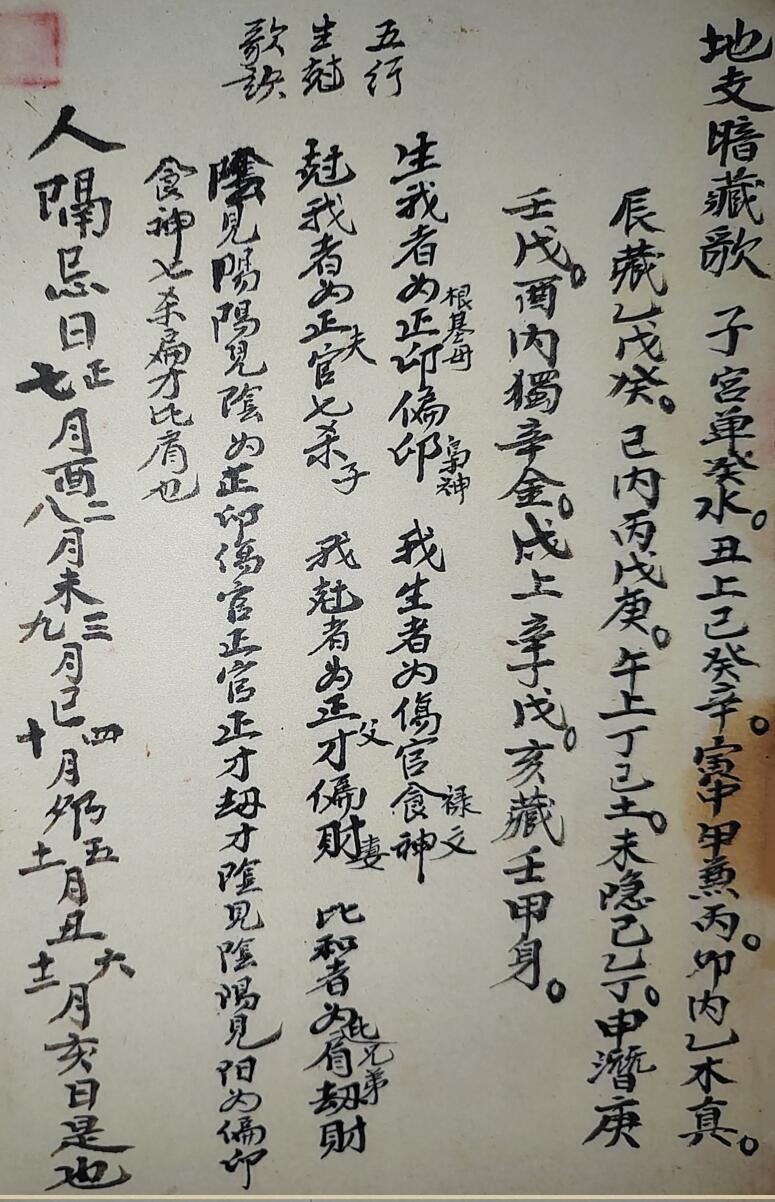 地支暗藏歌 子宮单癸水。丑上己癸辛。寅中甲兼丙。卯内乙木真。
辰藏乙戊癸。巳内丙戊庚。午上丁己土。未隐己乙丁。申潛庚
壬戊。酉内獨辛金。戌上辛丁戊。亥藏壬甲身。
五行
生尅
歌訣
生我者为正印偏印 我生者为傷官食神
根基母 梟神 禄文
尅我者为正官七杀 我尅者为正才偏財 比和者为比肩劫財
夫 子 父 妻 兄弟
陰見陽陽見陰为正印傷官正官正才劫才陰見陰陽見阳为偏印
食神七杀偏才比肩也
人隔忌日 正七月酉 二八月未 三九月巳 四十月卯 五十一月丑 六十二月亥日是也